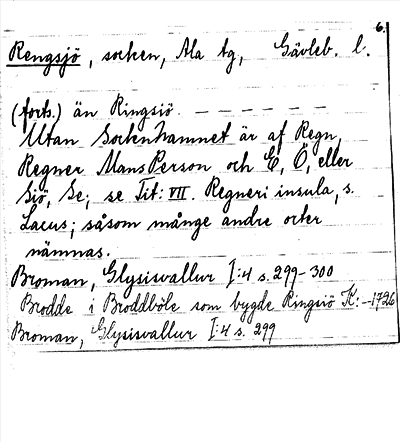 6.
Rengsjö, socken, Ala tg, Gävleb. l.
(forts.) än Ringsiö - - - - - -
Utan Sockenhamnet är af Regn,
Regner Mans Person och E, Ö, eller
Siö, Se; se Tit: VII. Regneri insula, s.
Lacus; såsom många andre orter
nämnas.
Broman, Glysisvallur I:4 s. 299-300
Brodde i Broddböle som bygde Ringsiö K: -1726
Broman, Glysisvallur I:4 s. 299